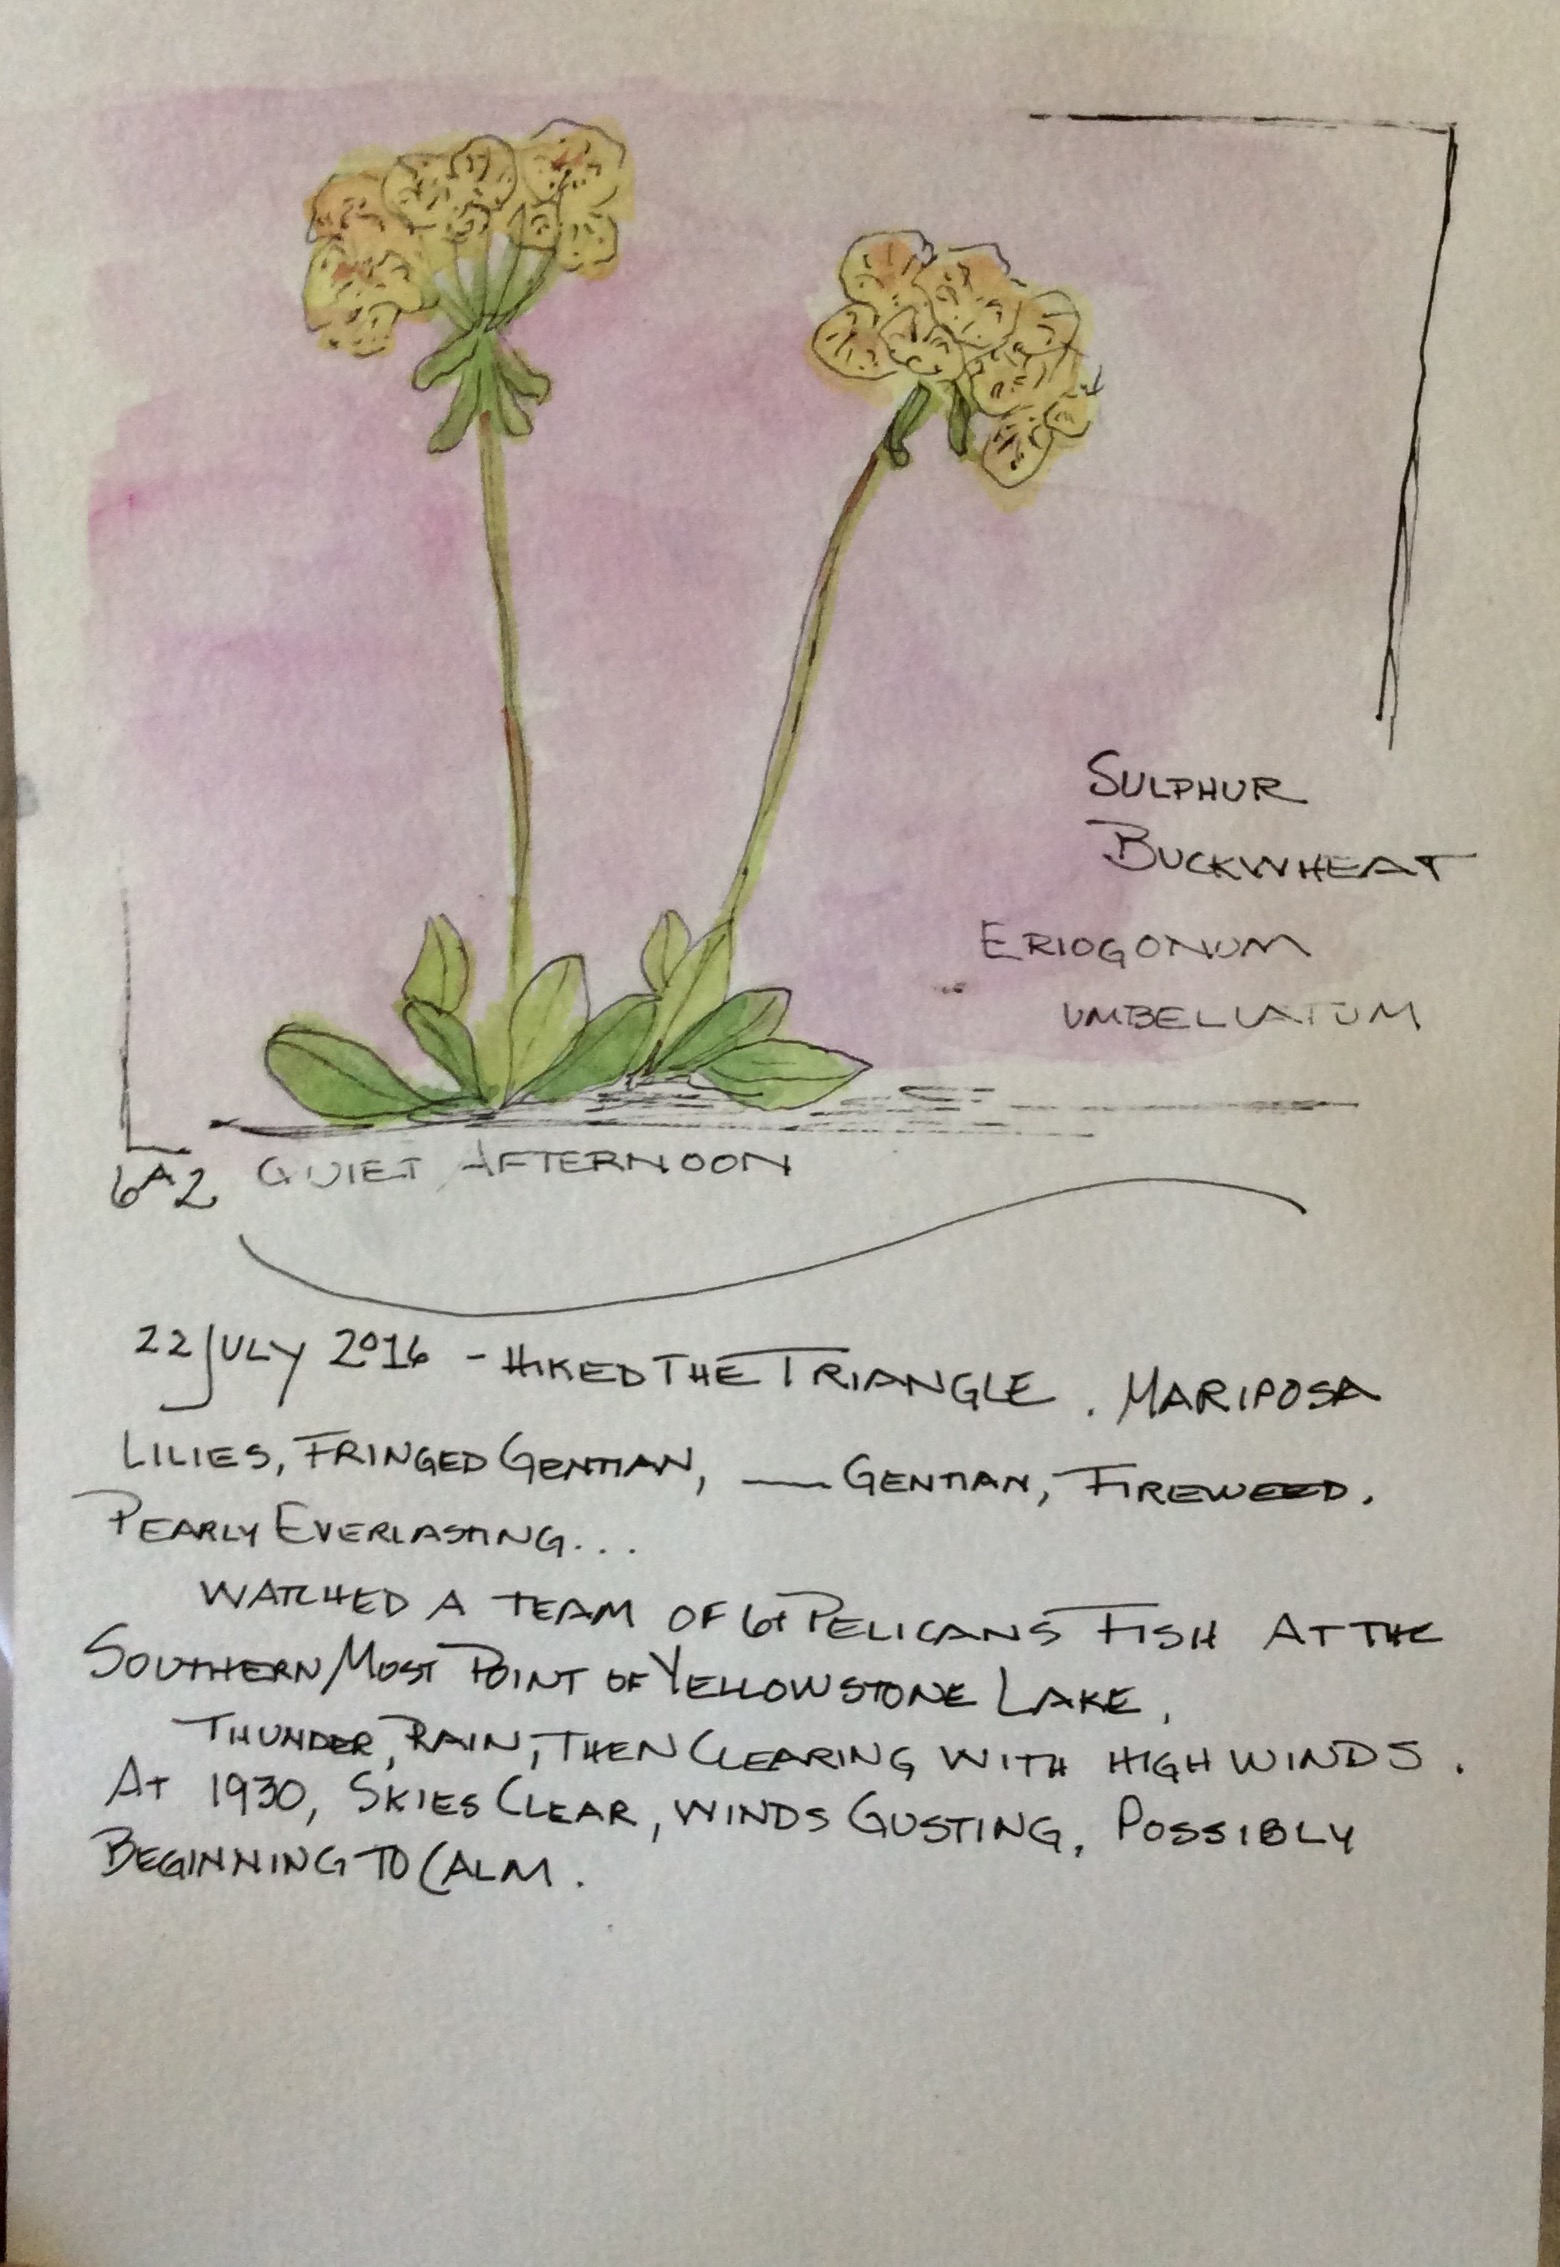 SULPHUR
BUCKWHEAT
ERIOGONUM
UMBELLATUM
6A2 QUIET AFTERNOON
22 JULY 2016 - HIKED THE TRIANGLE. MARIPOSA
LILIES, FRINGED GENTIAN, ___ GENTIAN, FIREWEED.
PEARLY EVERLASTING...
WATCHED A TEAM OF 6+ PELICANS FISH AT THE
SOUTHERN MOST POINT OF YELLOWSTONE LAKE.
THUNDER, RAIN, THEN CLEARING WITH HIGH WINDS.
AT 1930, SKIES CLEAR, WINDS GUSTING, POSSIBLY
BEGINNING TO CALM.